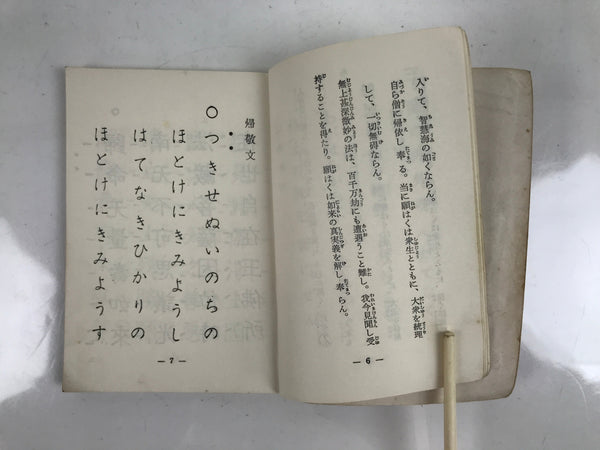 入りて、智慧海の如くならん。
自ら僧に帰依し奉る。当に願はくは衆生とともに、大衆を統理
して、一切無碍ならん。
無上甚深微妙の法は、百千万劫にも遭遇うこと難し。我今見聞し受
持することを得たり。願はくは如来の真実義を解し奉らん。
— 6 —
帰敬文
○つきせぬいのちの
ほとけにきみようし
はてなきひかりの
ほとけにきみようす
— 7 —